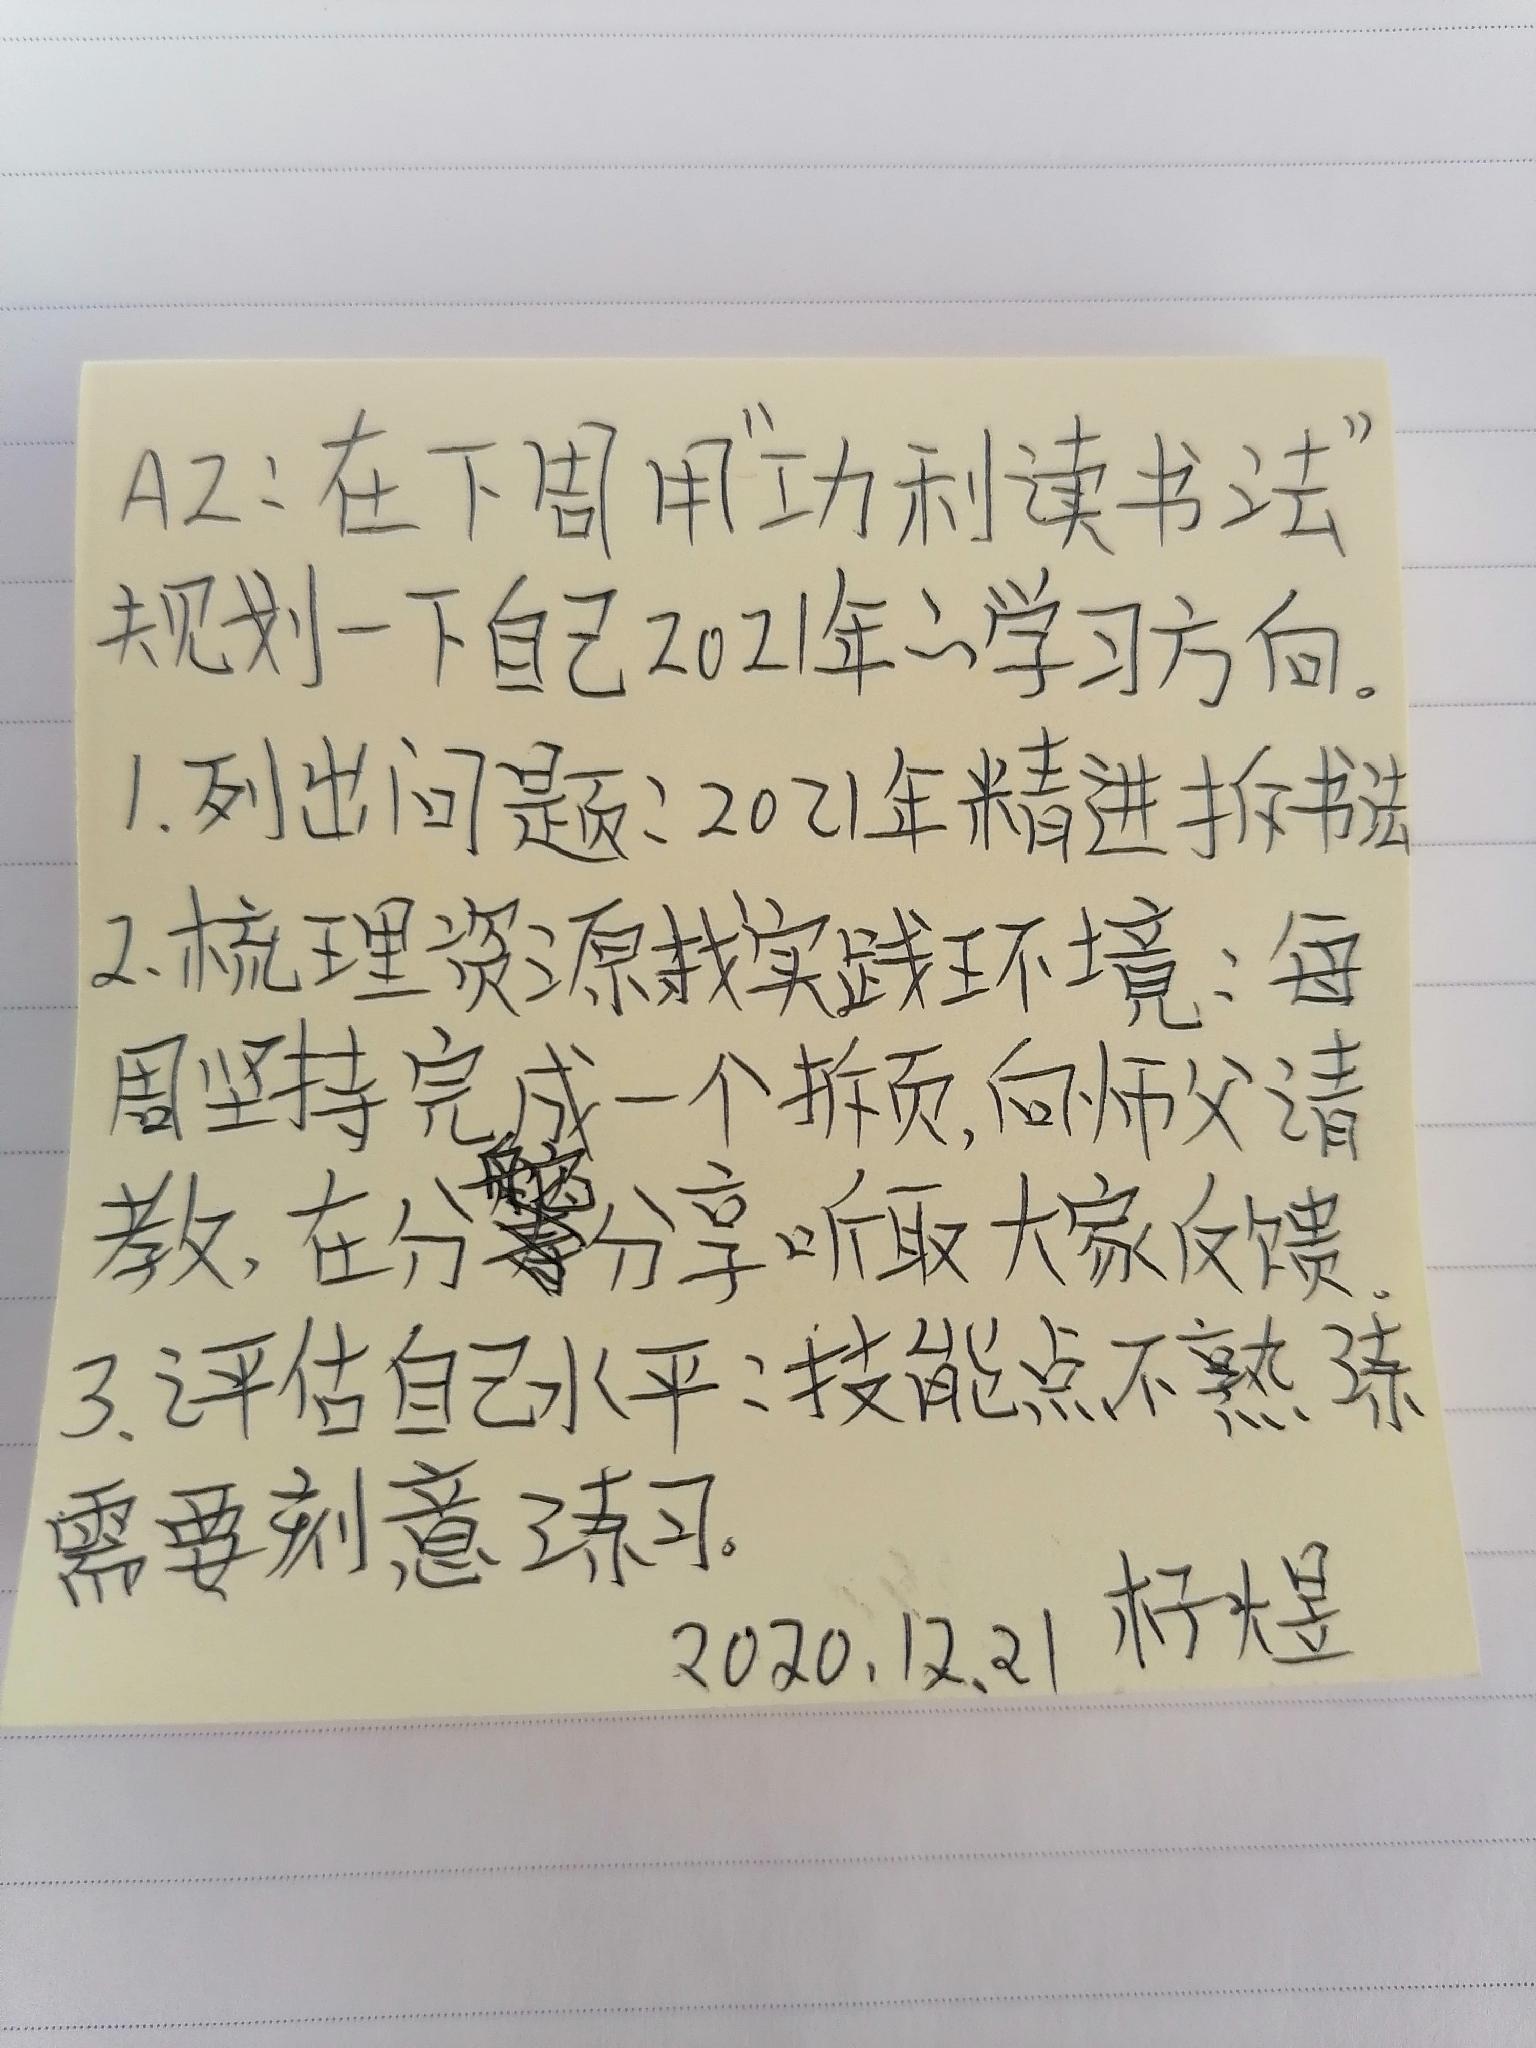 A2:在下周用“功利读书法”
规划一下自己2021年的学习方向。
1.列出问题:2021年精进拆书法
2.梳理资源找实践环境:每
周坚持完成一个拆页,向师父请
教,在分分享听取大家反馈.
3.评估自己水平:技能点不熟练
需要刻意练习。
2020.12.21 杍煜